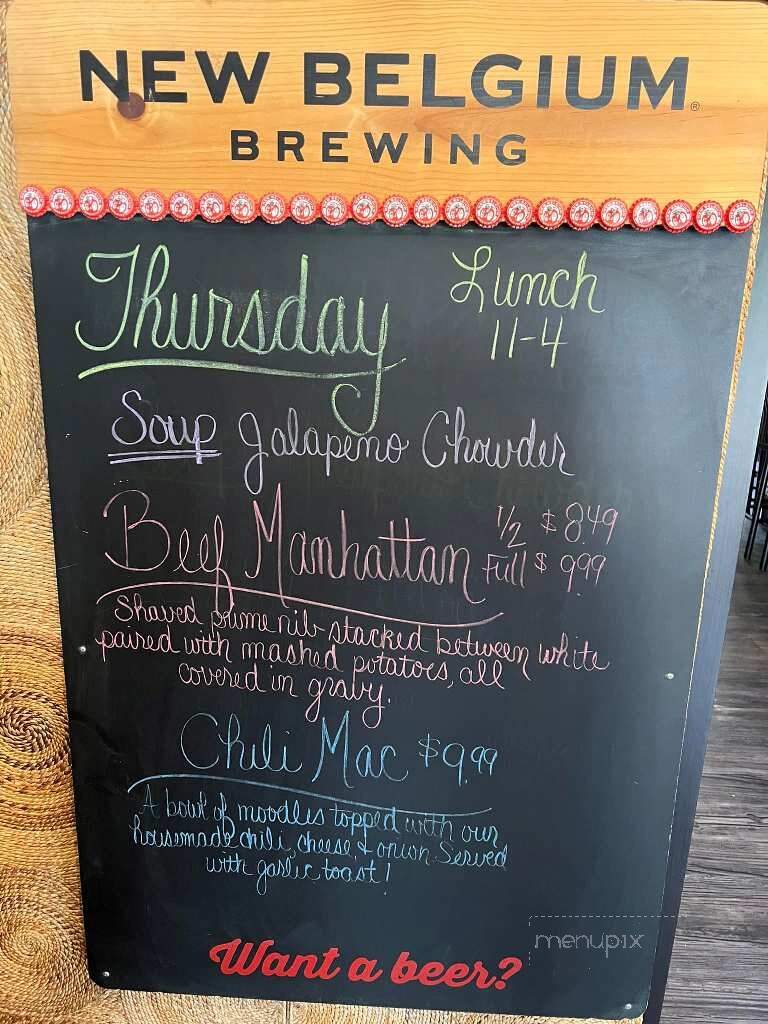 NEW BELGIUM®
BREWING
Thursday
Lunch
11-4
Soup Jalapeno Chowder
Beef Manhattan
1/2 $8.49
Full $9.99
Shaved prime rib stacked between white
paired with mashed potatoes, all
covered in gravy.
Chili Mac $9.99
A bowl of noodles topped with our
housemade chili, cheese, & onion. Served
with garlic toast!
Want a beer?
menupix